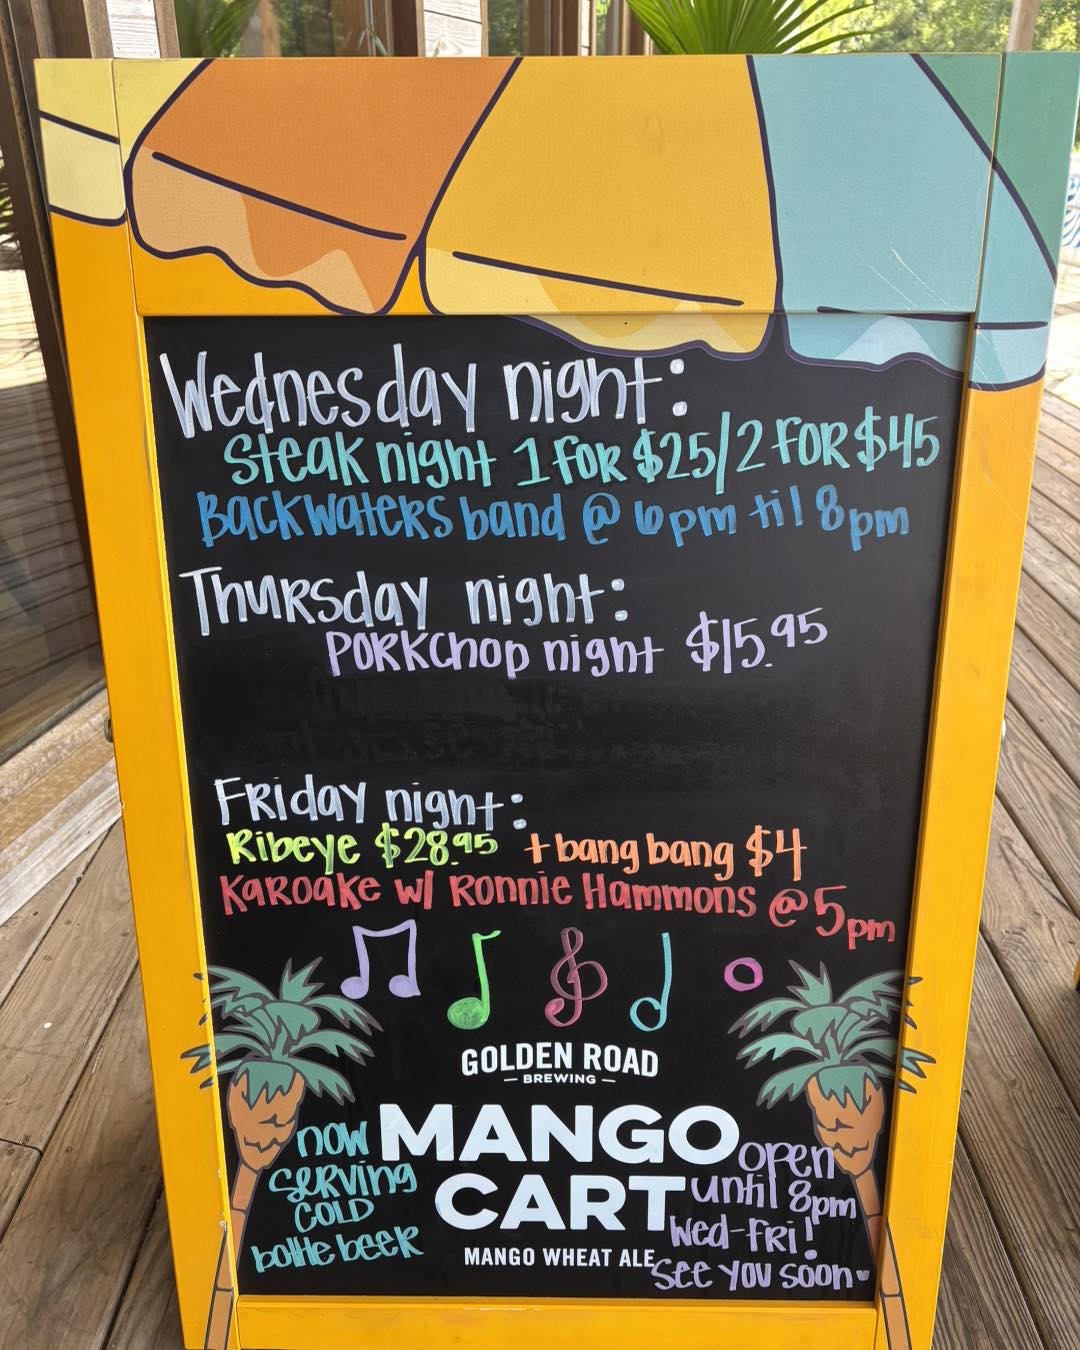 Wednesday night:
Steak night 1 for $25/2 FOR $45
Backwaters band @ 6pm til 8pm
Thursday night:
Porkchop night $15.95
Friday night:
Ribeye $28.95 + bang bang $4
Karoake w/ Ronnie Hammons @ 5pm
GOLDEN ROAD
BREWING
MANGO
CART
MANGO WHEAT ALE
now
serving
cold
bottle beer
open
until 8pm
Wed-Fri!
See you soon